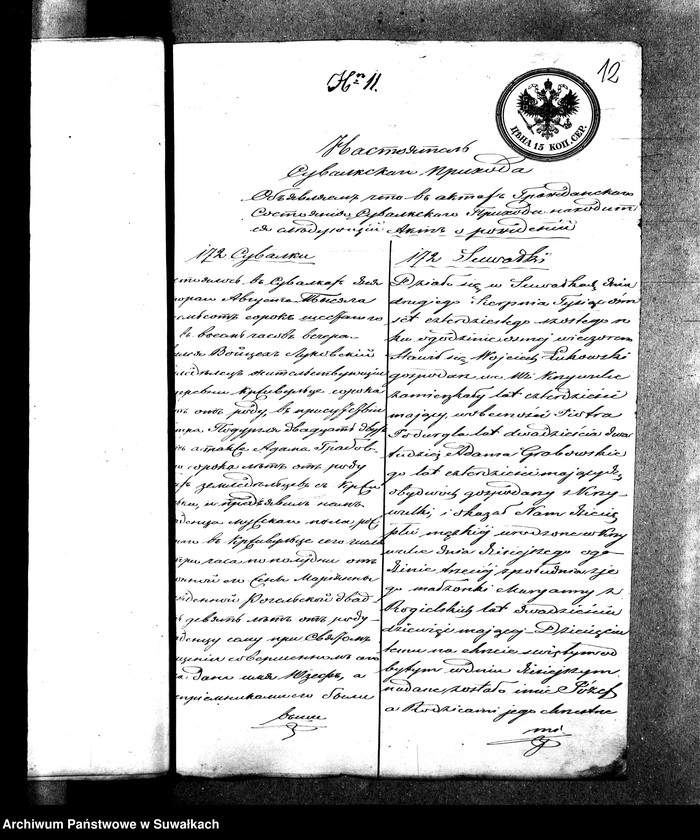 № 11.
12
ЦѢНА 15 КОП. СЕР.
Настоятель
Сувалкскаго прихода
Объявляетъ что въ актахъ Гражданскаго
Состоянія Сувалкскаго Прихода находит
ся слѣдующій Актъ о рожденій
172 Сувалки
стоялось въ Сувалкахъ дня
Августа Тысяча
сотъ сорокъ шестаго
въ восемь часовъ вечера
Войцехъ Луковскій
жительствующій
сорока
отъ роду, въ присутствіи
Подургля двадцать два
а также Адама Грабов
сорока лѣтъ отъ роду
земледѣльцевъ съ Криви
и предъявилъ намъ
младенца мужескаго пола, ро
въ сего числа
три часа по полудни отъ
его Жены Маріянны
Рогельской двад
девять лѣтъ отъ роду
младенцу сему при Святомъ
совершенномъ
дано имя Юзефъ, а
воспріемниками его были
выше
172 Suwałki
Działo się w Suwałkach dnia
drugiego Sierpnia Tysiąc ośm
set czterdziestego szóstego ro
ku o godzinie ósmej wieczorem
Stawił się Wojciech Łukowski
gospodarz we Wsi Krzywulce
zamieszkały lat czterdzieści
mający, w obecności Piotra
Podurgla lat dwadzieścia dwa
tudzież Adama Grabowskie
go lat czterdzieści mających
obydwóch gospodarzy z Krzy-
wulki, i okazał Nam dziecię
płci męzkiej urodzone w Krzy
wulce dnia dzisiejszego o go
dzinie trzeciej z południa z je
go małżonki Maryanny z
Rogielskich lat dwadzieścia
dziewięć mającej – Dziecięciu
temu na chrzcie świętym od
bytym w dniu dzisiejszym
nadane zostało imie Józef
a Rodzicami jego chrzestne
mi
Archiwum Państwowe w Suwałkach